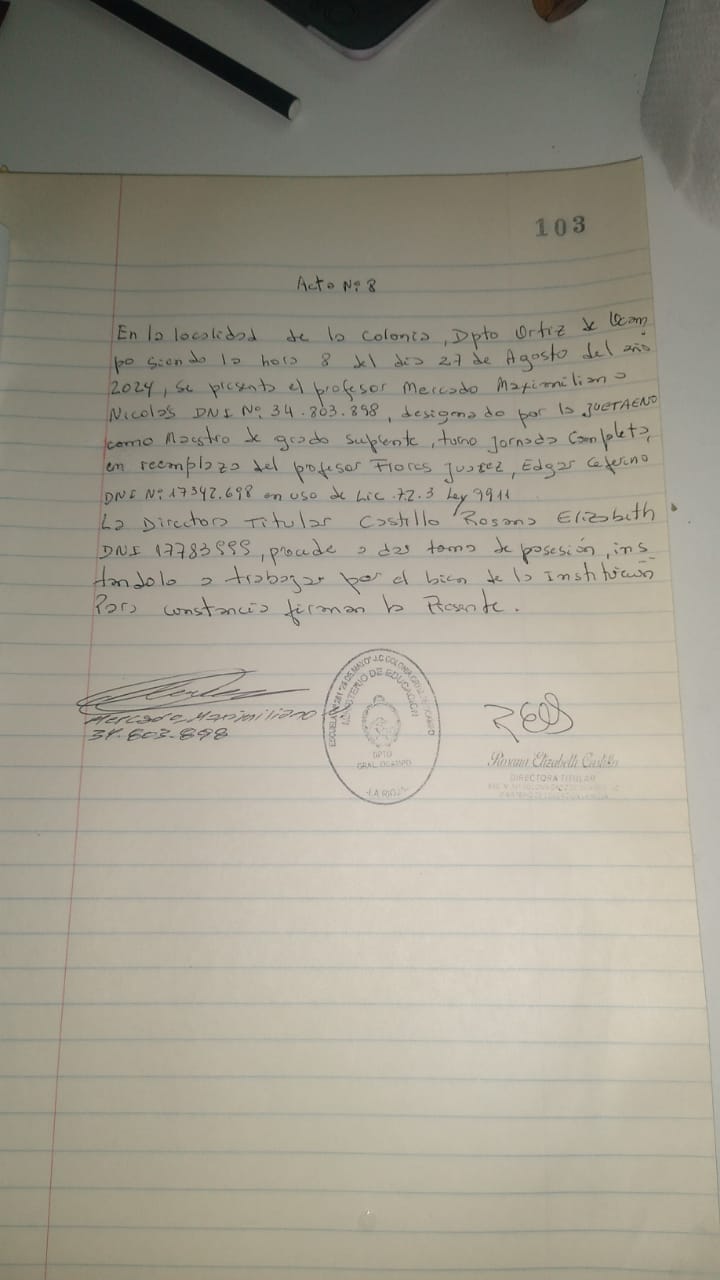 103
Acta Nº 8
En la localidad de la Colonia, Dpto Ortiz de Ocam
po siendo la hora 8 del día 27 de Agosto del año
2024, se presenta el profesor Mercado Maximiliano
Nicolás DNI Nº 34.803.898, designado por la JUETAENO
como Maestro de grado suplente, turno Jornada Completa,
en reemplazo del profesor Flores Juarez, Edgar Ceferino
DNI Nº 17342.698 en uso de Lic. 72.3 Ley 9911
La Directora Titular Castillo Rosana Elizabeth
DNI 17783999, procede a dar toma de posesión, ins_
tandolo a trabajar por el bien de la Institución
Para constancia firman la Presente.
Mercado Maximiliano
34.803.898
MINISTERIO DE EDUCACION
DPTO
GRAL. OCAMPO
-LA RIOJA-
Rosana Elizabeth Castillo
DIRECTORA TITULAR